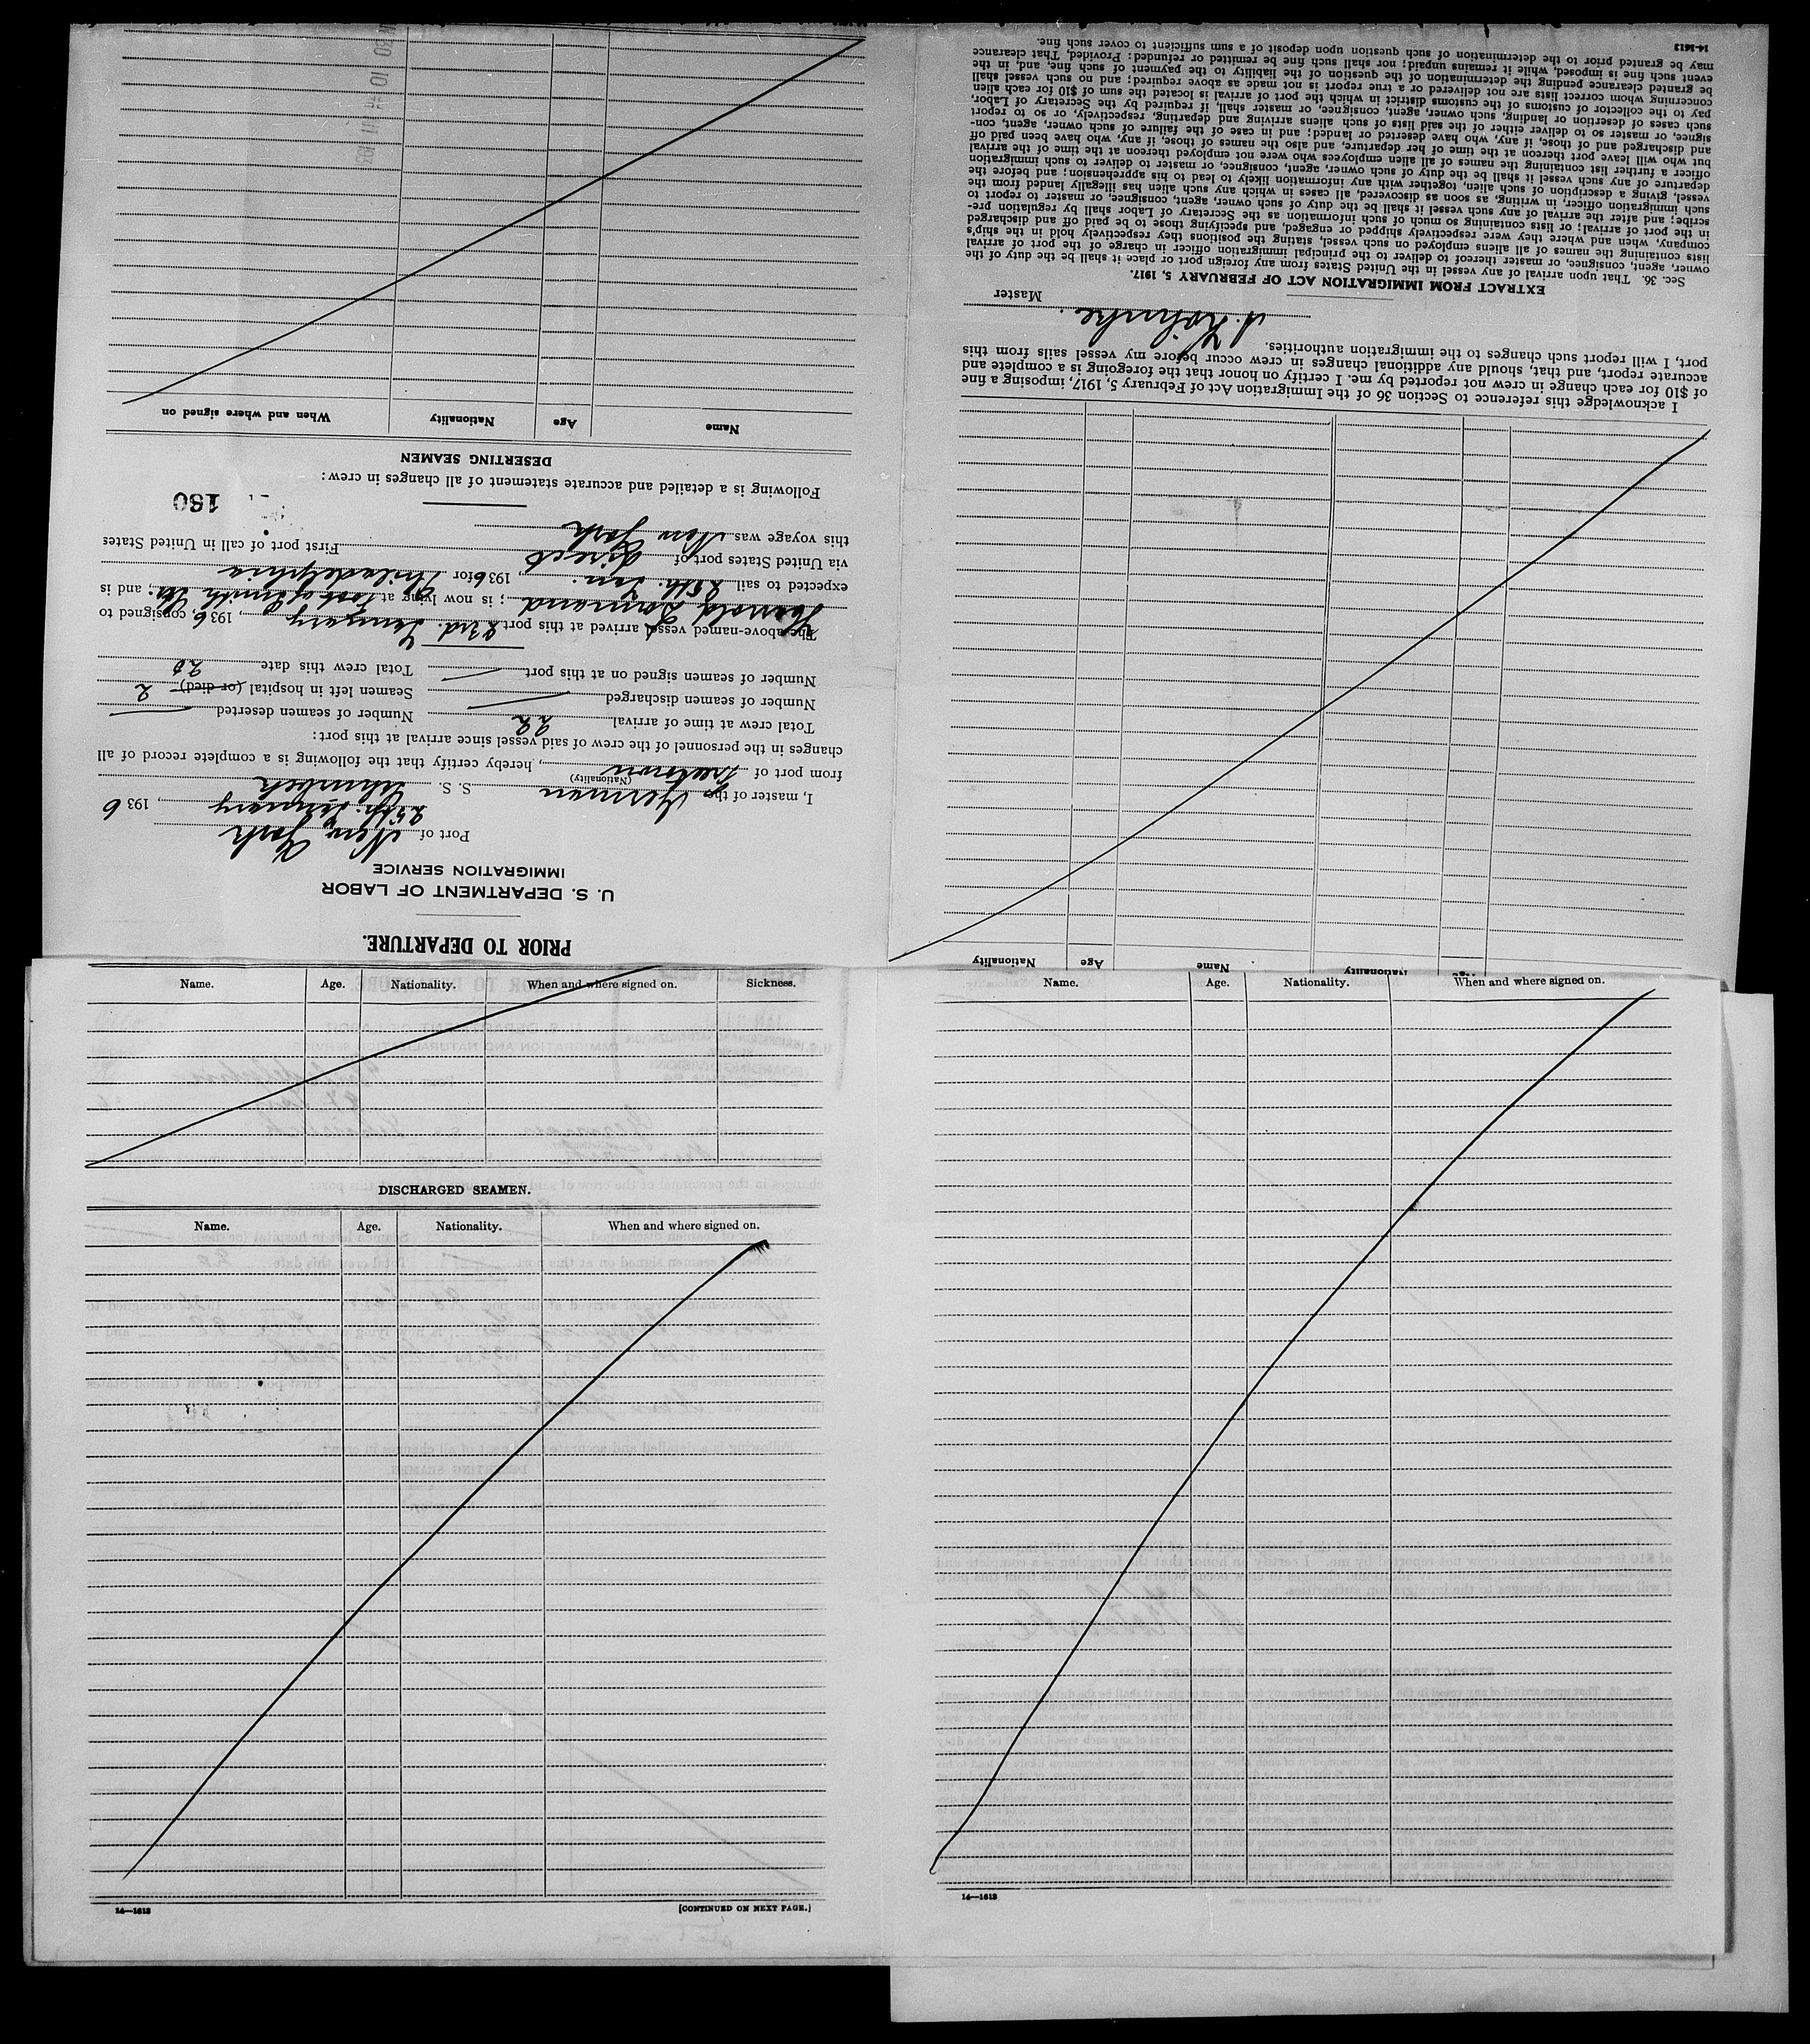 PRIOR TO DEPARTURE.
U. S. DEPARTMENT OF LABOR
IMMIGRATION SERVICE
Port of New York
25th January, 1936
I, master of the German S. S.
(Nationality)
from port of Freetown, hereby certify that the following is a complete record of all
changes in the personnel of the crew of said vessel since arrival at this port:
Total crew at time of arrival 22 Number of seamen deserted —
Number of seamen discharged — Seamen left in hospital (or died) 2
Number of seamen signed on at this port — Total crew this date 20
The above-named vessel arrived at this port 23rd. January, 1936, consigned to
; is now lying at foot of Smith Str.; and is
expected to sail 25th. Jan., 1936 for Philadelphia
via United States port of direct First port of call in United States
this voyage was New York
180
Following is a detailed and accurate statement of all changes in crew:
DESERTING SEAMEN
Name Age Nationality When and where signed on
Name Age Nationality
I acknowledge this reference to Section 36 of the Immigration Act of February 5, 1917, imposing a fine
of $10 for each change in crew not reported by me. I certify on honor that the foregoing is a complete and
accurate report, and that, should any additional changes in crew occur before my vessel sails from this
port, I will report such changes to the immigration authorities.
Master
EXTRACT FROM IMMIGRATION ACT OF FEBRUARY 5, 1917.
Sec. 36. That upon arrival of any vessel in the United States from any foreign port or place it shall be the duty of the
owner, agent, consignee, or master thereof to deliver to the principal immigration officer in charge of the port of arrival
lists containing the names of all aliens employed on such vessel, stating the positions they respectively hold in the ship's
company, when and where they were respectively shipped or engaged, and specifying those to be paid off and discharged
in the port of arrival; or lists containing so much of such information as the Secretary of Labor shall by regulation pre-
scribe; and after the arrival of any such vessel it shall be the duty of such owner, agent, consignee, or master to report to
such immigration officer, in writing, as soon as discovered, all cases in which any such alien has illegally landed from the
vessel, giving a description of such alien, together with any information likely to lead to his apprehension; and before the
departure of any such vessel it shall be the duty of such owner, agent, consignee, or master to deliver to such immigration
officer a further list containing the names of all alien employees who were not employed thereon at the time of the arrival
but who will leave port thereon at the time of her departure, and also the names of those, if any, who have been paid off
and discharged and of those, if any, who have deserted or landed; and in case of the failure of such owner, agent, con-
signee, or master so to deliver either of the said lists of such aliens arriving and departing, respectively, or so to report
such cases of desertion or landing, such owner, agent, consignee, or master shall, if required by the Secretary of Labor,
pay to the collector of customs of the customs district in which the port of arrival is located the sum of $10 for each alien
concerning whom correct lists are not delivered or a true report is not made as above required; and no such vessel shall
be granted clearance pending the determination of the question of the liability to the payment of such fine, and, in the
event such fine is imposed, while it remains unpaid; nor shall such fine be remitted or refunded: Provided, That clearance
may be granted prior to the determination of such question upon deposit of a sum sufficient to cover such fine.
14-1613
Name. Age. Nationality. When and where signed on. Sickness.
DISCHARGED SEAMEN.
Name. Age. Nationality. When and where signed on.
14—1613
[CONTINUED ON NEXT PAGE.]
Name. Age. Nationality. When and where signed on.
14—1613